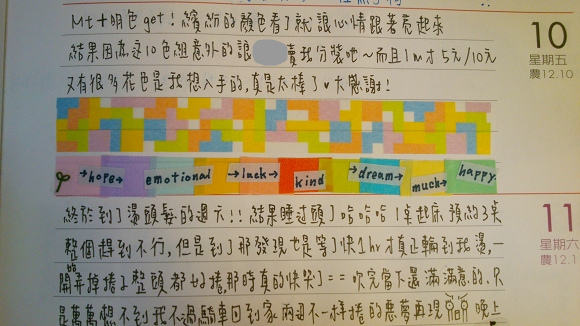 Mt+明色get！繽紛的顏色看了就讓心情跟著亮起來
結果因為這10色組意外的讓 賣我分裝吧～而且1m才5元/10元
又有很多花色是我想入手的，真是太棒了♥大感謝！
→hope→ emotional →luck→ kind →dream→ much→ happy
終於到了燙頭髮的週六!! 結果睡過頭了哈哈哈1點起床預約3點
整個趕到不行，但是到了那發現也是等了快1hr才真正輪到我燙，一
開始弄掉捲子整頭都好捲那時真的快哭了== 吹完當下還滿滿意的.只
是萬萬想不到我不過騎車回到家兩邊不一樣捲的惡夢再現 晚上
10
星期五
農12.10
11
星期六
農12.1